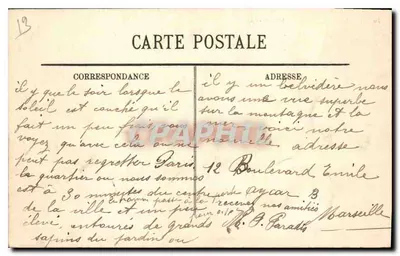 13
CARTE POSTALE
CORRESPONDANCE
il y que le soir lorsque le
soleil est couché qu'il
fait un peu frais vous
voyez qu'avec cela on ne
peut pas regretter Paris
le quartier ou nous sommes
est à 30 minutes du centre
de la ville et un peu
élevé entourés de grands
sapins du jardin ou
ADRESSE
il y un belvédère nous
avons une vue superbe
sur la montagne et la
mer voici notre
nouvelle adresse
12 Boulevard Emile
3
recevez nos amitiés
Marseille
CPARAMA